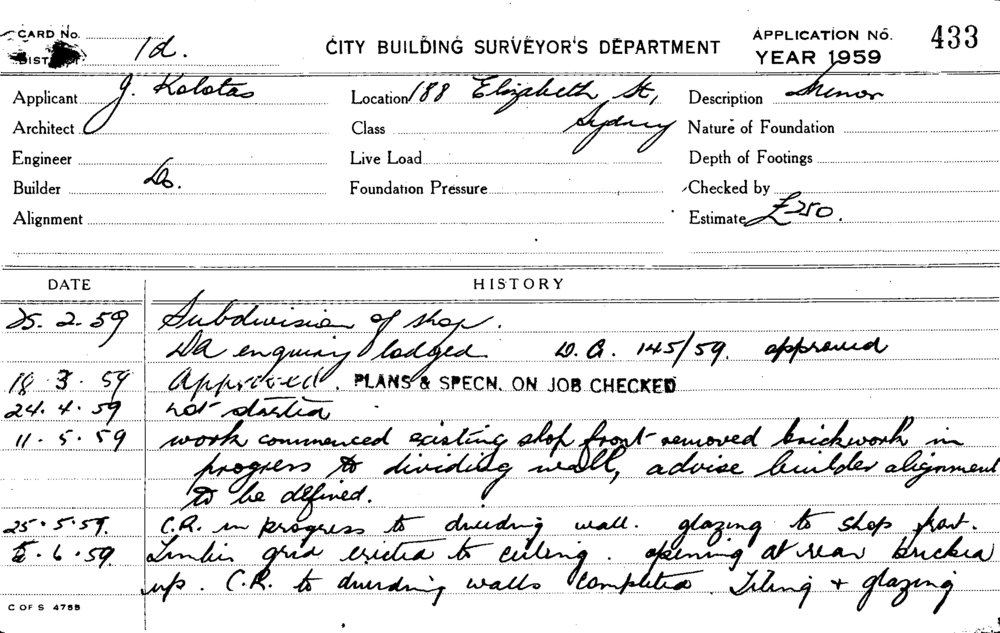 CARD No.
DIST 1d.
CITY BUILDING SURVEYOR'S DEPARTMENT
APPLICATION No. 433
YEAR 1959
Applicant J. Kolotas
Location 188 Elizabeth St,
Description Minor
Architect
Class Sydney
Nature of Foundation
Engineer
Live Load
Depth of Footings
Builder Do.
Foundation Pressure
Checked by
Alignment
Estimate £250.
DATE HISTORY
25. 2. 59 Subdivision of shop.
DA enquiry lodged. D.A. 145/59. approved
18 3. 59 Approved. PLANS & SPECN. ON JOB CHECKED
24. 4. 59 not started
11. 5. 59 work commenced existing shop front removed brickwork in
progress to dividing wall, advise builder alignment
to be defined.
25. 5. 59. C.R. in progress to dividing wall. glazing to shop front.
5. 6. 59. Timber grid erected to ceiling. opening at rear bricked
up. C.R. to dividing walls completed. Tiling + glazing
C OF S 475B